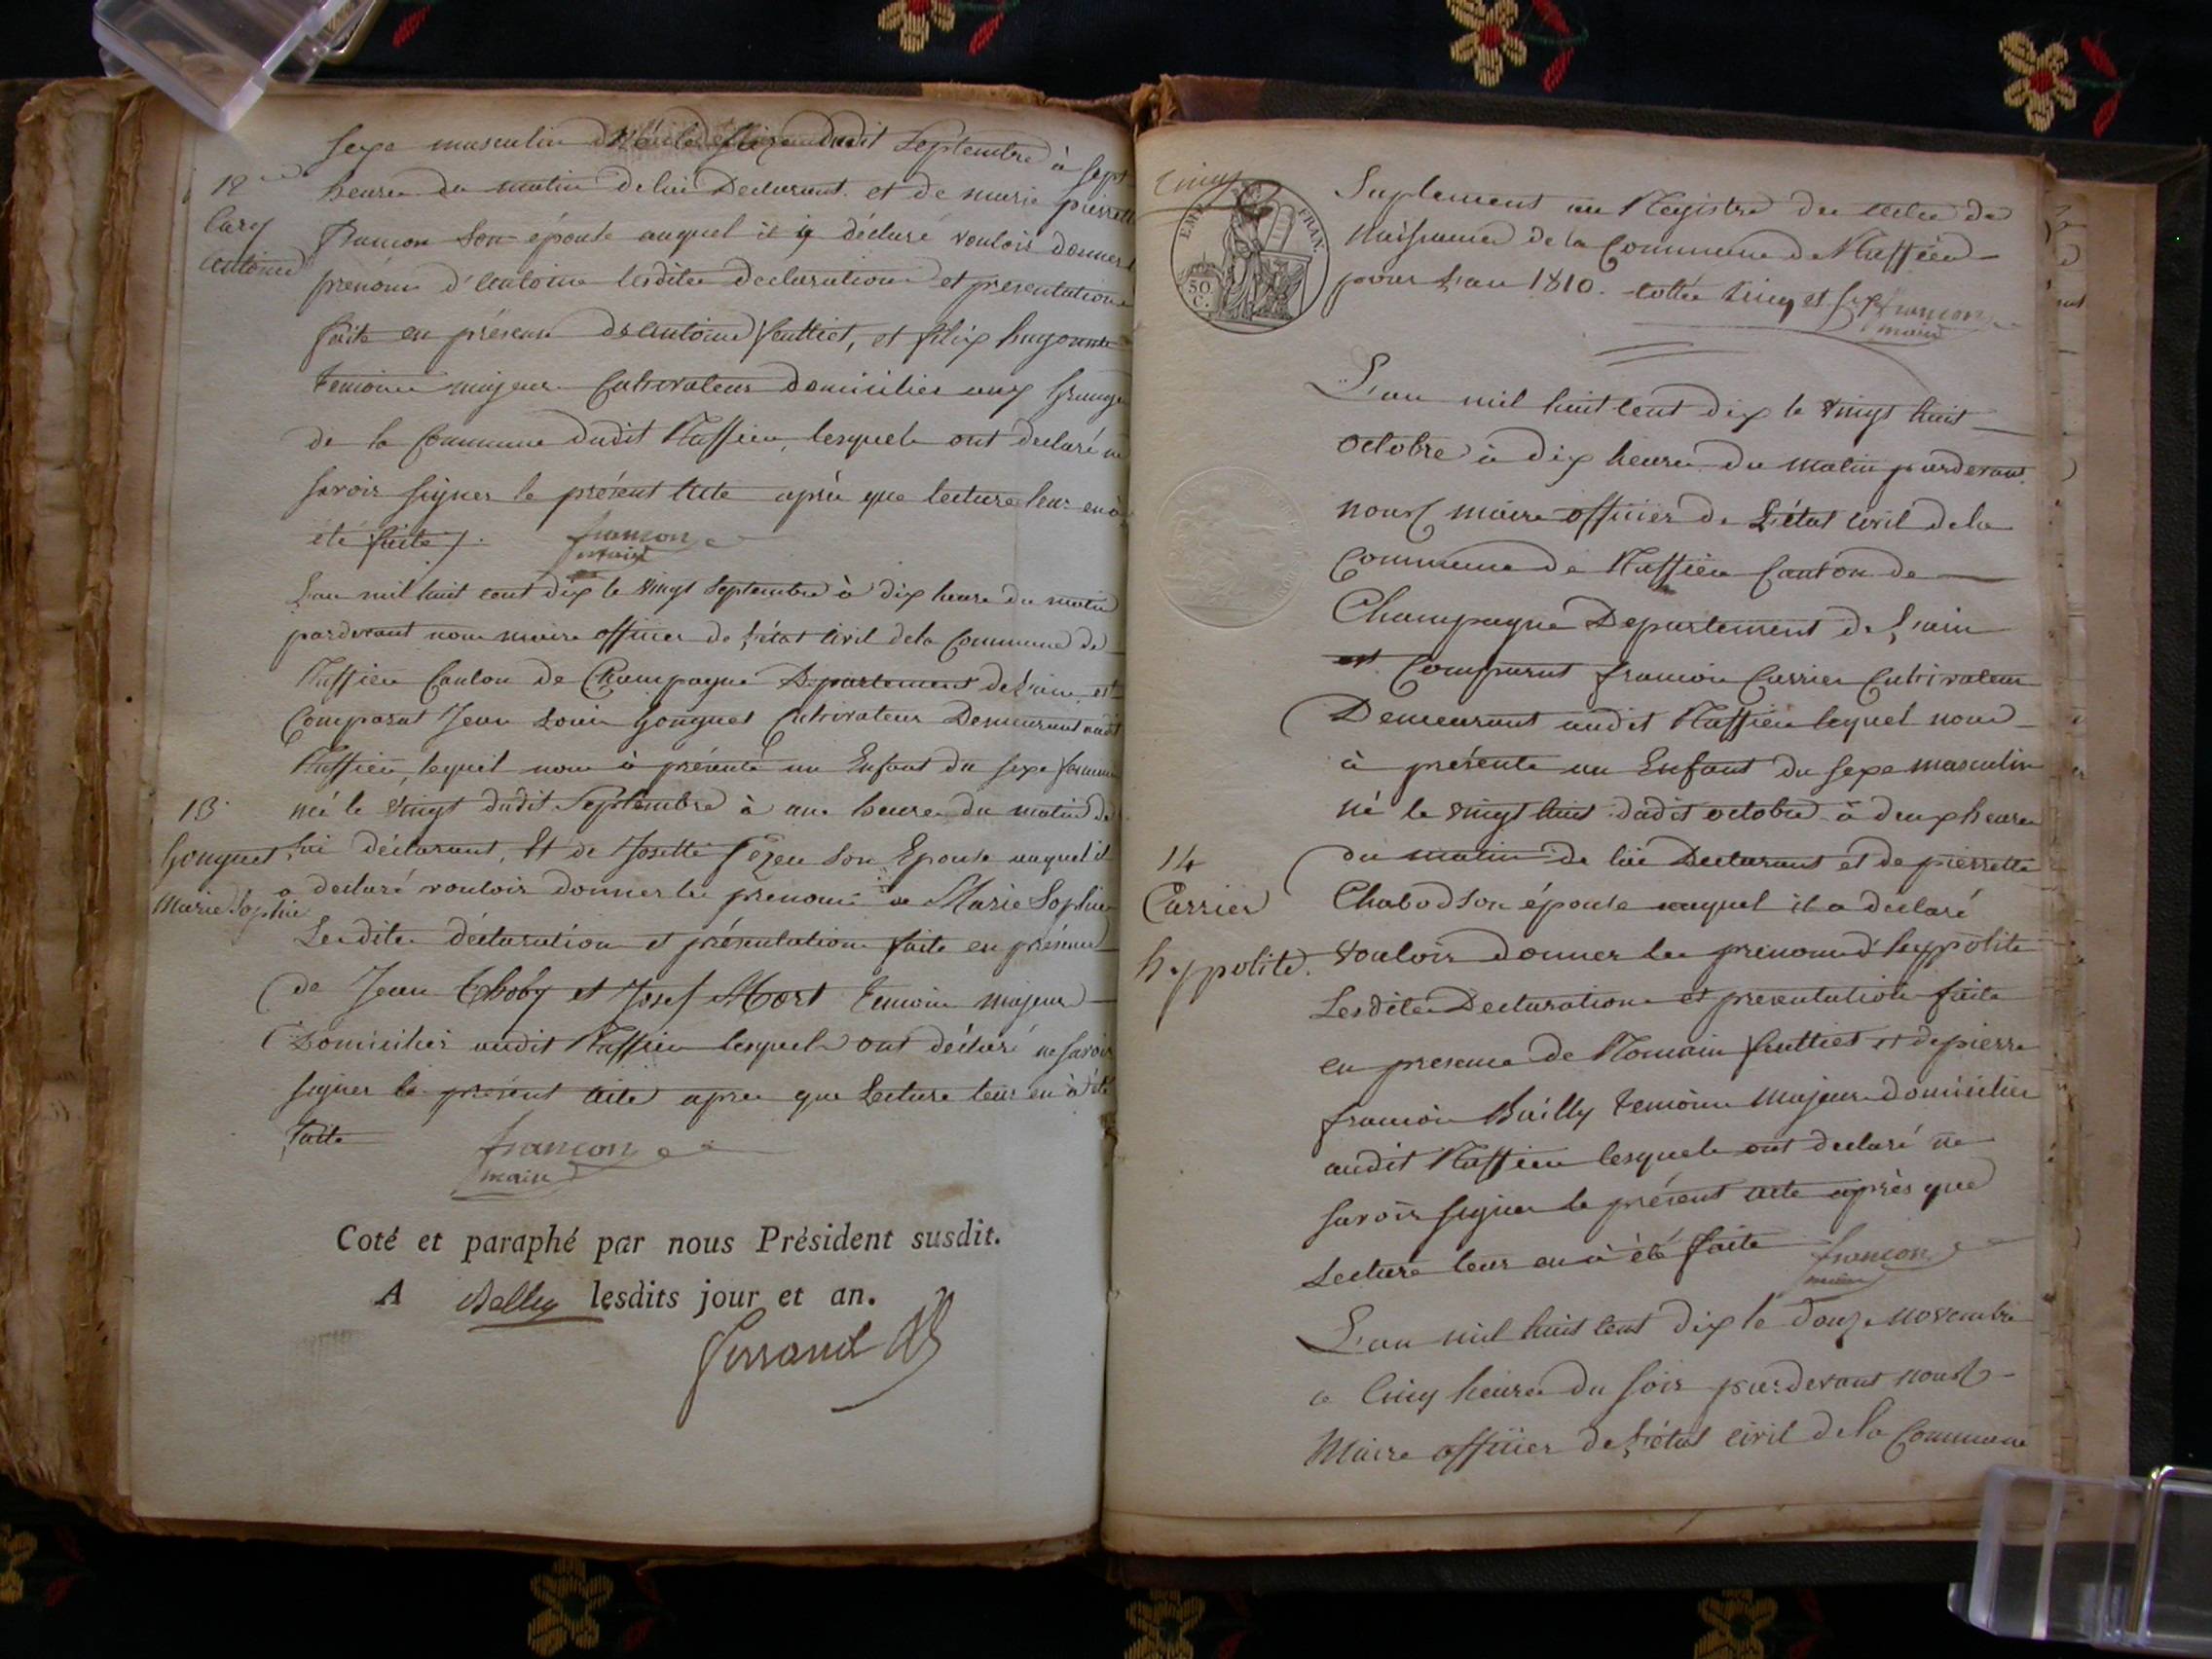 sexe masculin dudit Septembre à sept
12
heures du matin de lui Declarant et de marie pierrette
Larg
antoine
son épouse auquel il a déclaré vouloir donner le
prénom d'antoine lesdites declaration et presentation
faite en présence de antoine feuttiet, et felix hugonnet
temoins majeur Cultivateur domiciliés aux Grange
de la Commune dudit Ruffieu, lesquels ont declaré ne
savoir signer le présent acte après que lecture leur en à
été faite /.
françon
maire
L'an mil huit cent dix le vingt Septembre à dix heure du matin
pardevant nous maire officier de L'état Civil de la Commune de
Ruffieu Canton de Champagne Departement de L'ain est
Comparut Jean Louis Gonguet Cultivateur Demeurant audit
Ruffieu, lequel nous à présenté un Enfant du sexe feminin
13
né le vingt dudit Septembre à une heure du matin de
Gonguet
Marie Sophie
lui déclarant, Et de Josette son Epouse auquel il
a declaré vouloir donner les prenoms de Marie Sophie
Lesdites déclaration et présentation faite en présence
de Jean et Josef temoins majeur
Domiciliés audit Ruffieu lesquels ont déclaré ne savoir
signer le présent acte apres que Lecture leur en à été
faite
françon
maire
Coté et paraphé par nous Président susdit.
A Belley lesdits jour et an.
Ferrand
cinq
EMP. FRAN.
50
C.
Suplement au Registre des actes de
Naissance de la Commune de Ruffieu
pour L'an 1810. cottée cinq et six
françon
maire
L'an mil huit cent dix le vingt huit
octobre à dix heures du matin pardevant
nous maire officier de L'état civil de la
Commune de Ruffieu Canton de
Champagne Departement de L'ain
est Comparut françois Carrier Cultivateur
Demeurant audit Ruffieu lequel nous
à présenté un Enfant du sexe masculin
né le vingt huit dudit octobre à deux heures
14
Carrier
hyppolite.
du matin de lui Declarant et de pierrette
Chabod son épouse auquel il a declaré
vouloir donner les prenoms d'hyppolite
Lesdites Declaration et presentation faite
en presence de Romain feuttiet et de pierre
françois Bailly temoins majeurs domiciliés
audit Ruffieu lesquels ont declaré ne
savoir signer le présent acte après que
Lecture leur en à été faite
françon
maire
L'an mil huit cent dix le douze novembre
a Cinq heures du soir pardevant nous
Maire officier de L'état civil de la Commune